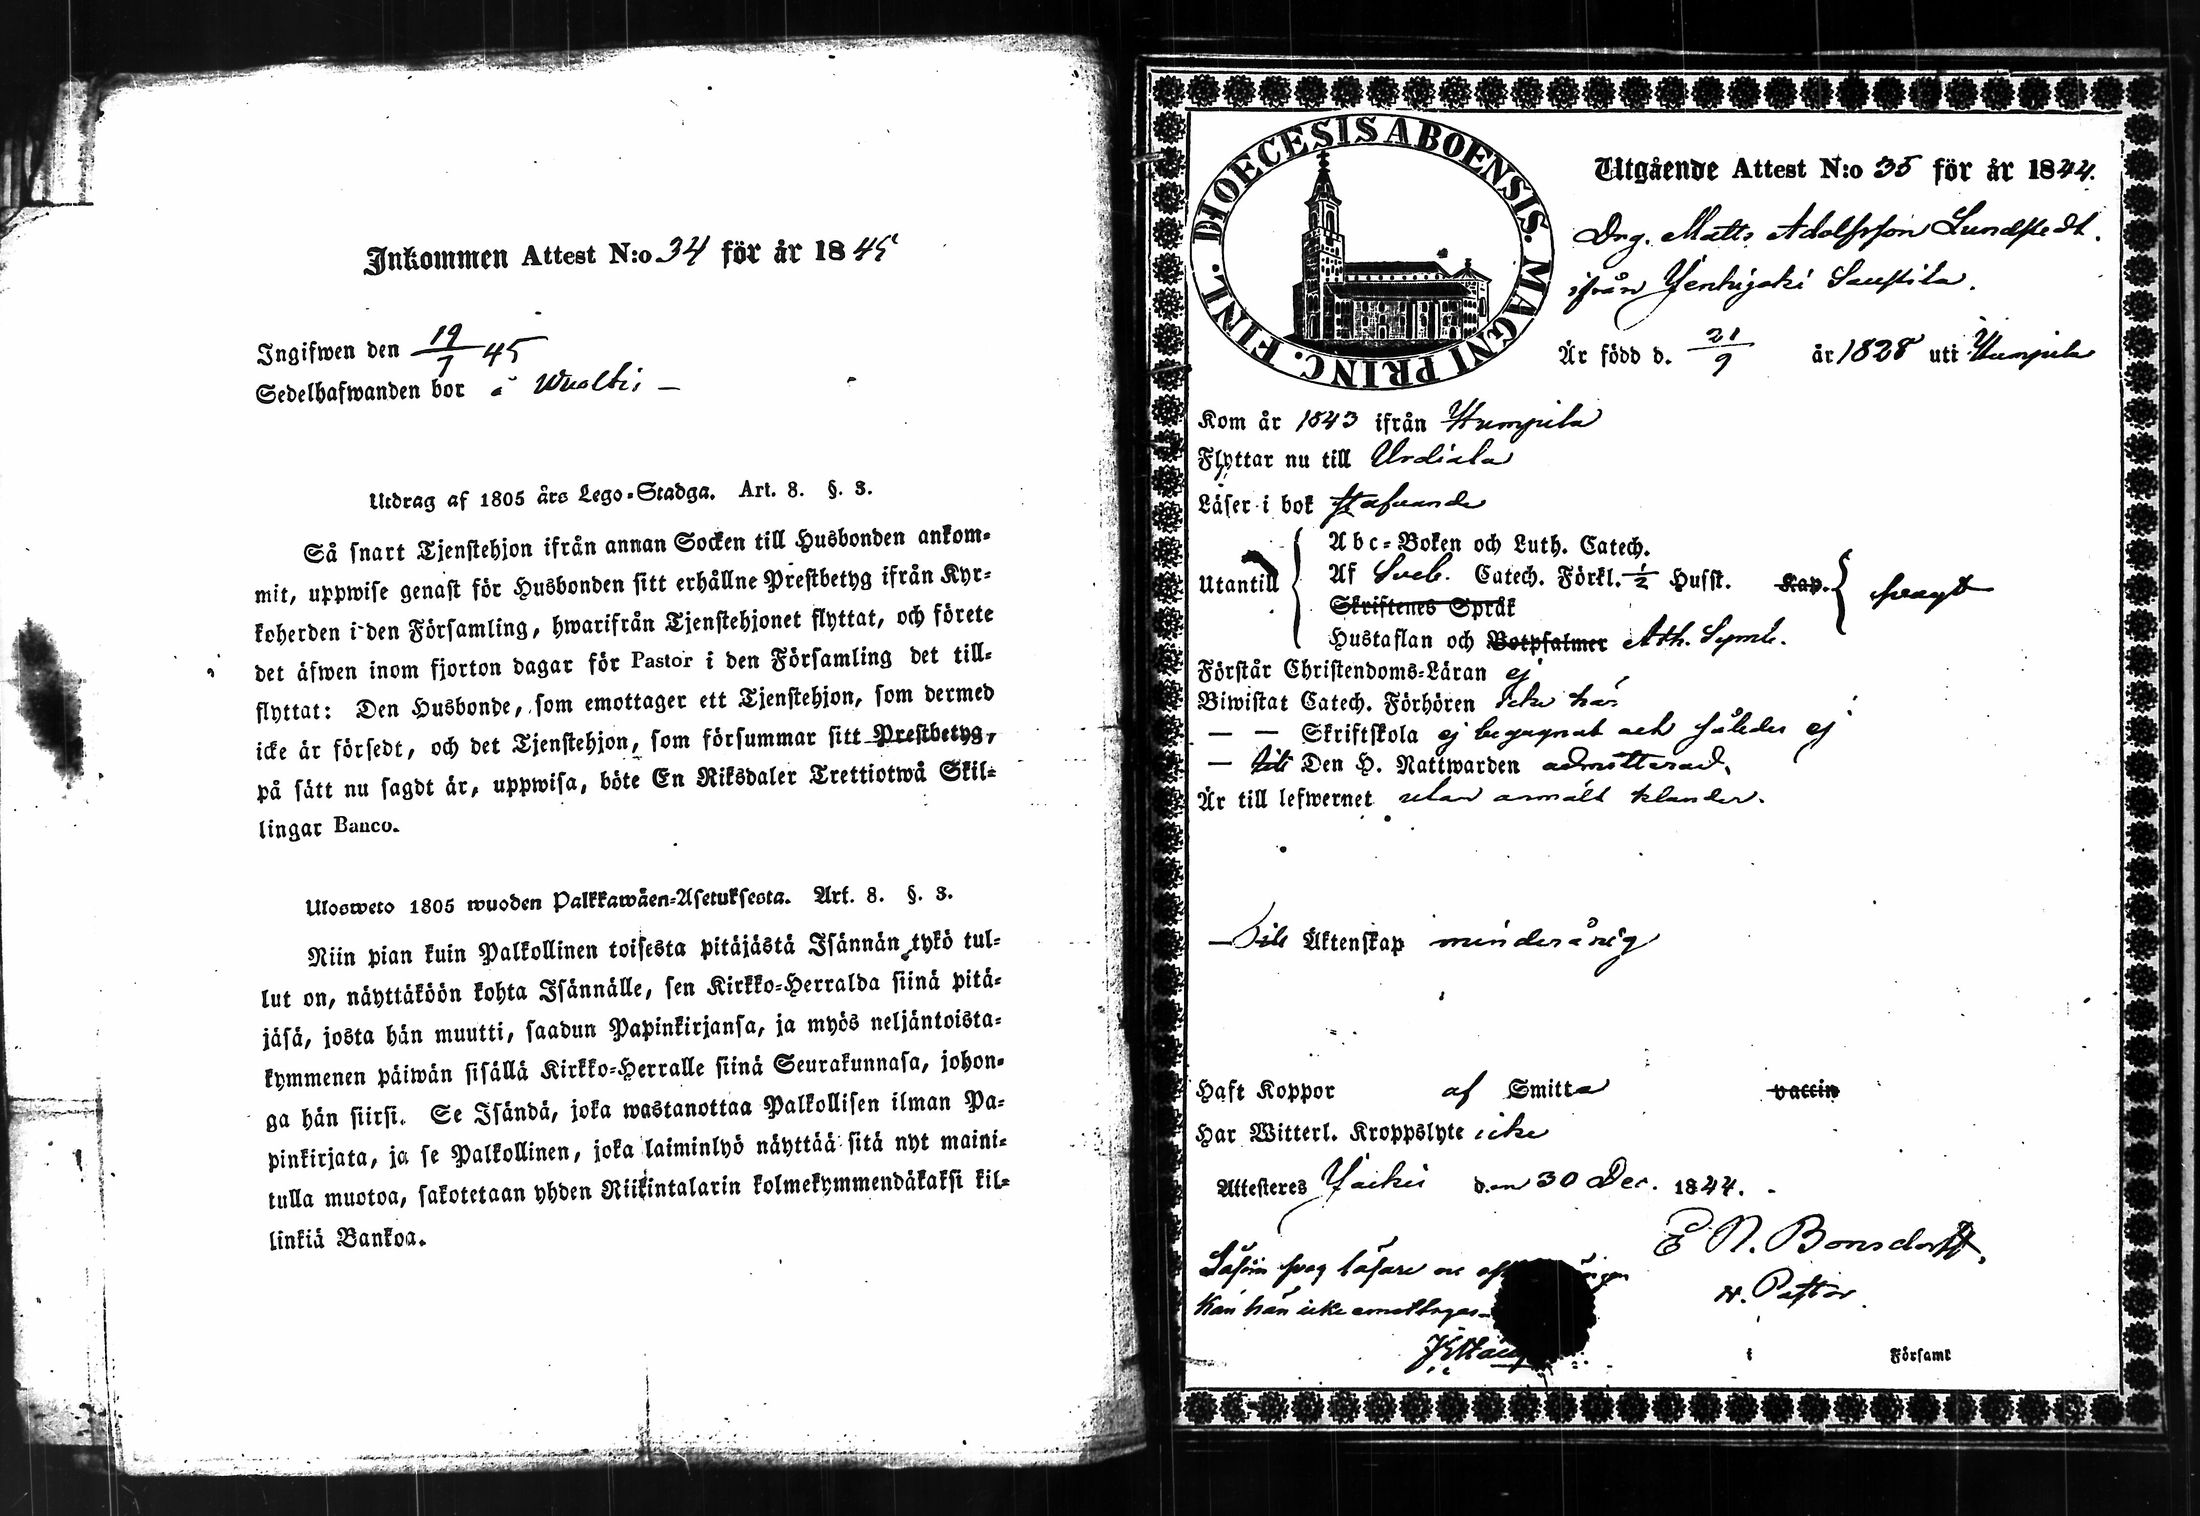 Inkommen Attest N:o 34 för år 1845
Ingifwen den 19/1 45
Sedelhafwanden bor i
Utdrag af 1805 års Lego-Stadga. Art. 8. §. 3.
Så snart Tjenstehjon ifrån annan Socken till Husbonden ankom-
mit, uppwise genast för Husbonden sitt erhållne Prestbetyg ifrån Kyr-
koherden i den Församling, hwarifrån Tjenstehjonet flyttat, och förete
det äfwen inom fjorton dagar för Pastor i den Församling det till-
flyttat: Den Husbonde, som emottager ett Tjenstehjon, som dermed
icke är försedt, och det Tjenstehjon, som försummar sitt Prestbetyg,
på sätt nu sagdt är, uppwisa, böte En Riksdaler Trettiotwå Skil-
lingar Banco.
Ulosweto 1805 wuoden Palkkawäen-Asetuksesta. Art. 8. §. 3.
Niin pian kuin Palkollinen toisesta pitäjästä Isännän tykö tul-
lut on, näyttäköön kohta Isännälle, sen Kirkko-Herralda siinä pitä-
jäsä, josta hän muutti, saadun Papinkirjansa, ja myös neljäntoista-
kymmenen päiwän sisällä Kirkko-Herralle siinä Seurakunnasa, johon-
ga hän siirsi. Se Isändä, joka wastanottaa Palkollisen ilman Pa-
pinkirjata, ja se Palkollinen, joka laiminlyö näyttää sitä nyt maini-
tulla muotoa, sakotetaan yhden Riikintalarin kolmekymmendäkaksi kil-
linkiä Bankoa.
DIOECESIS ABOENSIS. MAGNI PRINC. FINL.
Utgående Attest N:o 35 för år 1844.
Drg. Matts Adolfsson Lundstedt.
ifrån Jenhijoki Saustila.
Är född d. 21/9 år 1828 uti Humpila
Kom år 1843 ifrån Humpila
Flyttar nu till Urdiala
Läser i bok stafvande
Utantill Abc-Boken och Luth. Catech.
Af Sveb. Catech. Förkl. 1/2 Husst. Kap. svagt
Skriftenes Språk
Hustaflan och Botpsalmer Ath. Symb.
Förstår Christendoms-Läran ej
Biwistat Catech. Förhören icke här
— — Skriftskola ej begagnat och således ej
— till Den H. Nattwarden admitterad.
Är till lefwernet utan anmält klander.
— till Äktenskap minderårig
Haft Koppor af Smitta vaccin
Har Witterl. Kroppslyte icke
Attesteres Jockis den 30 Dec. 1844.
E N. Bonsdorff,
v. Pastor
Såsom svag läsare
kan han icke emottagas
i Församl